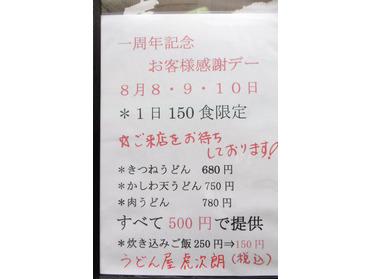 一周年記念
お客様感謝デー
8月8・9・10日
＊1日150食限定
☆ご来店をお待ち
しております!
＊きつねうどん 680円
＊かしわ天うどん 750円
＊肉うどん 780円
すべて500円で提供
＊炊き込みご飯250円⇒150円
うどん屋虎次朗(税込)